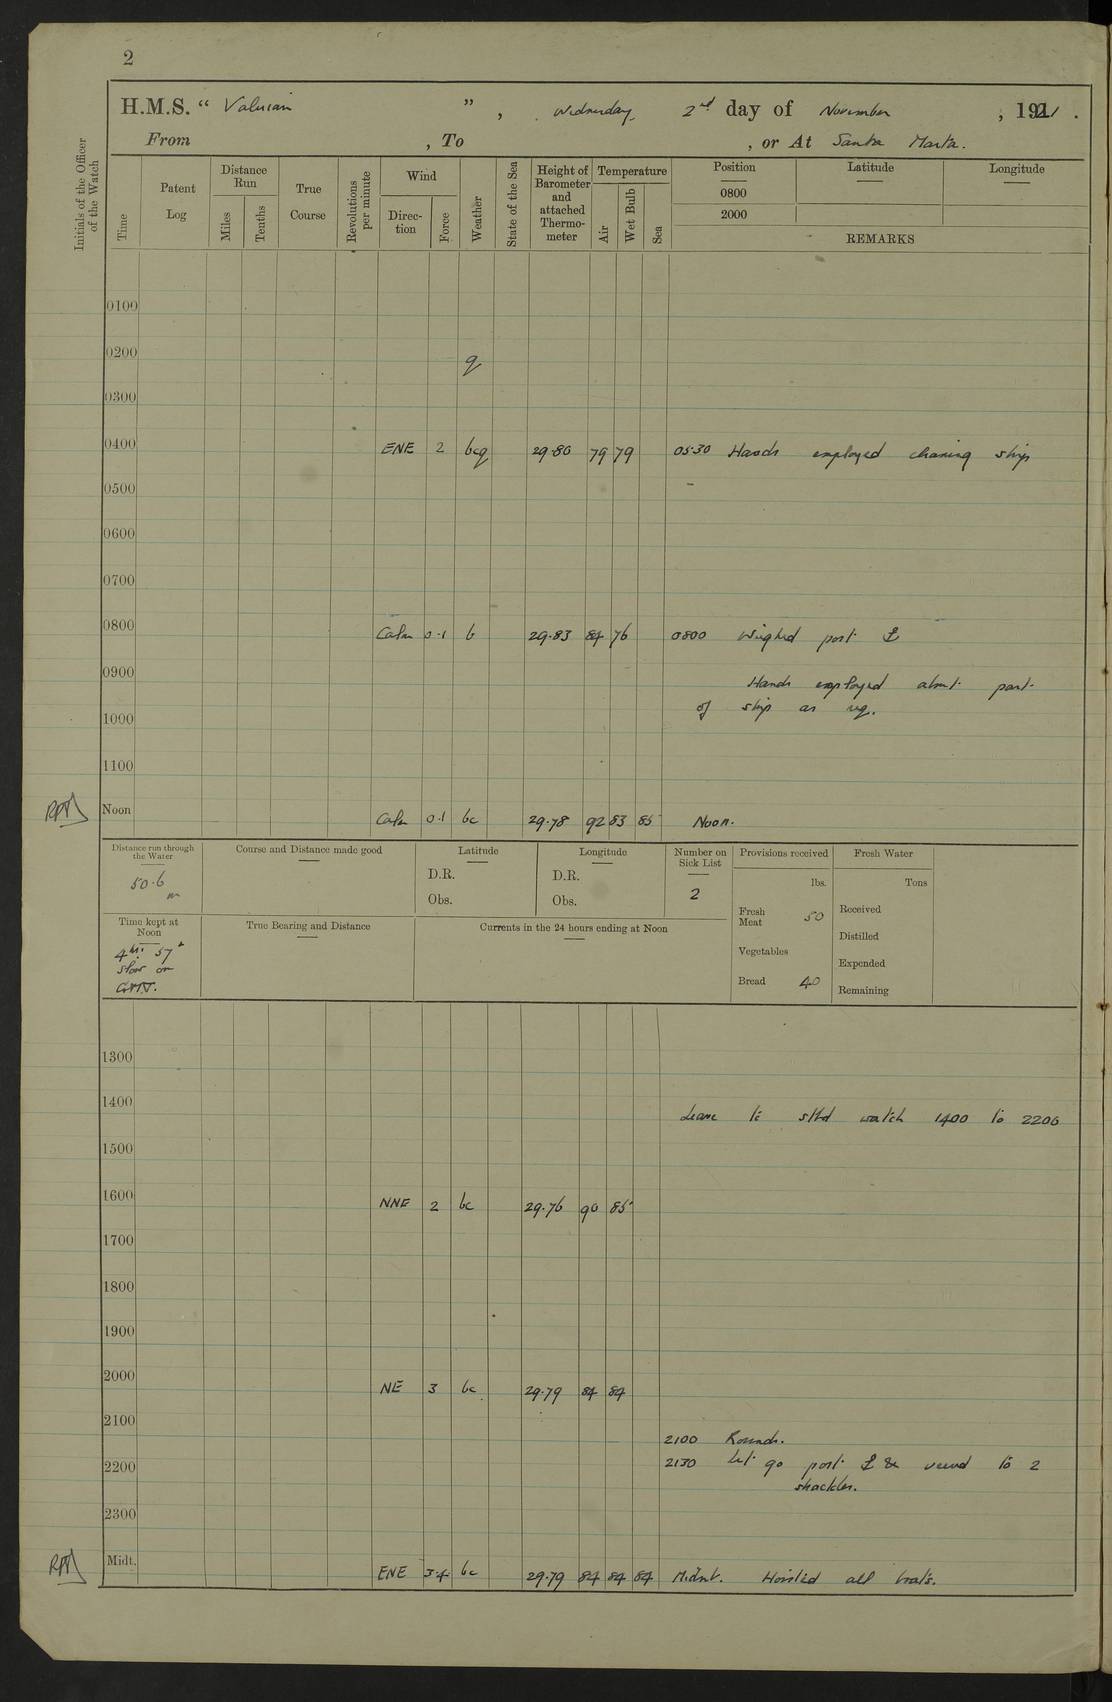 2
H.M.S. " Valerian " , Wednesday, 2nd day of November , 1921 .
From , To , or At Santa Marta.
Initials of the Officer of the Watch
Time
Patent Log
Distance Run
Miles
Tenths
True Course
Revolutions per minute
Wind
Direc-tion
Force
Weather
State of the Sea
Height of Barometer and attached Thermo-meter
Temperature
Air
Wet Bulb
Sea
Position Latitude Longitude
0800
2000
REMARKS
0100
0200 q
0300
0400 ENE 2 bcq 29.80 79 79 0530 Hands employed cleaning ship
0500
0600
0700
0800 Calm 0.1 b 29.83 84 76 0800 Weighed port £
0900 Hands employed about part
of ship as req.
1000
1100
Noon Calm 0.1 bc 29.78 92 83 85 Noon.
Distance run through the Water
50.6 m
Course and Distance made good
Latitude
D.R.
Obs.
Longitude
D.R.
Obs.
Number on Sick List
2
Provisions received
lbs.
Fresh Meat 50
Vegetables
Bread 40
Fresh Water
Tons
Received
Distilled
Expended
Remaining
Time kept at Noon
4 hr. 57
slow on
G.M.T.
True Bearing and Distance
Currents in the 24 hours ending at Noon
1300
1400 Leave to stbd watch 1400 to 2200
1500
1600 NNE 2 bc 29.76 90 85
1700
1800
1900
2000 NE 3 bc 29.79 84 84
2100
2100 Rounds.
2200 2130 Let go port £ & veered to 2
shackles.
2300
Midt. ENE 3.4 bc 29.79 84 84 84 Midnt. Hoisted all boats.